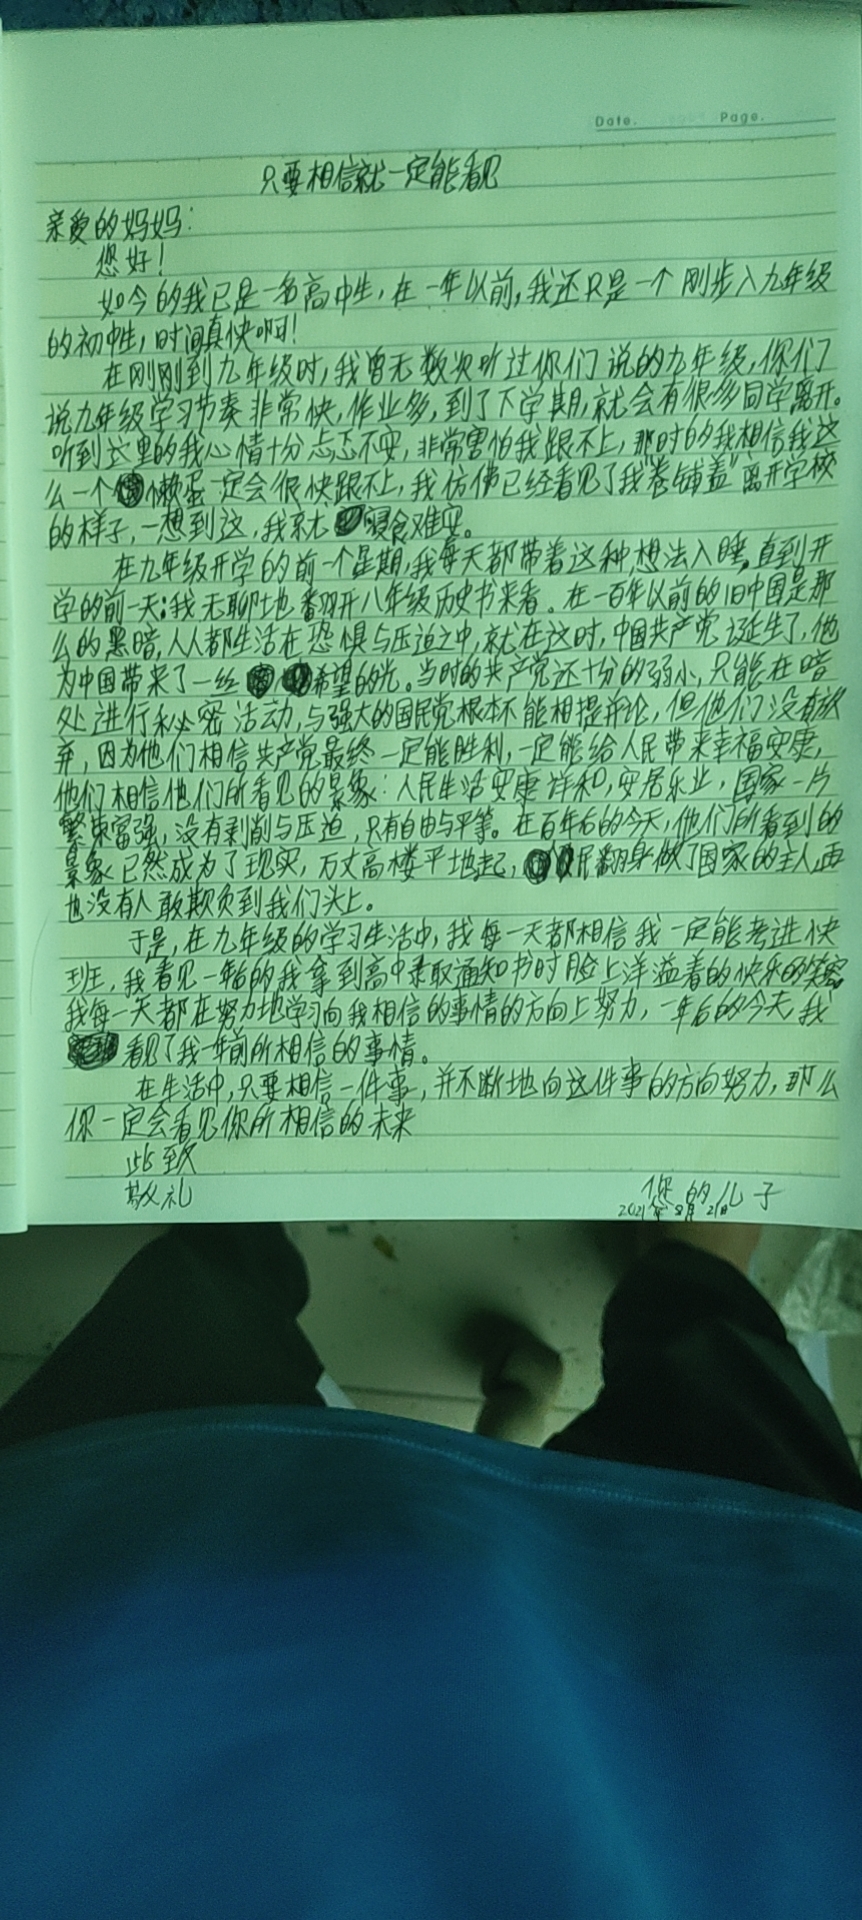 Date. Page.
只要相信就一定能看见
亲爱的妈妈:
您好!
如今的我已是一名高中生,在一年以前,我还只是一个刚步入九年级
的初中生,时间真快啊!
在刚刚到九年级时,我曾无数次听过你们说的九年级,你们
说九年级学习节奏非常快,作业多,到了下学期,就会有很多同学离开。
听到这里的我心情十分忐忑不安,非常害怕我跟不上,那时的我相信我这
么一个懒蛋一定会很快跟不上,我仿佛已经看见了我“卷铺盖”离开学校
的样子,一想到这,我就寝食难安。
在九年级开学的前一个星期,我每天都带着这种想法入睡,直到开
学的前一天;我无聊地翻开八年级历史书来看。在一百年以前的旧中国是那
么的黑暗,人人都生活在恐惧与压迫之中,就在这时,中国共产党诞生了,他
为中国带来了一丝希望的光。当时的共产党还十分的弱小,只能在暗
处进行秘密活动,与强大的国民党根本不能相提并论,但他们没有放
弃,因为他们相信共产党最终一定能胜利,一定能给人民带来幸福安康,
他们相信他们所看见的景象:人民生活安康祥和,安居乐业,国家一片
繁荣富强,没有剥削与压迫,只有自由与平等。在百年后的今天,他们所看到的
景象已然成为了现实,万丈高楼平地起,民翻身做了国家的主人,再
也没有人敢欺负到我们头上。
于是,在九年级的学习生活中,我每一天都相信我一定能考进快
班,我看见一年后的我拿到高中录取通知书时脸上洋溢着的快乐的笑容,
我每一天都在努力地学习向我相信的事情的方向上努力,一年后的今天,我
看见了我一年前所相信的事情。
在生活中,只要相信一件事,并不断地向这件事的方向努力,那么
你一定会看见你所相信的未来
此致
敬礼 您的儿子
2021年8月2日